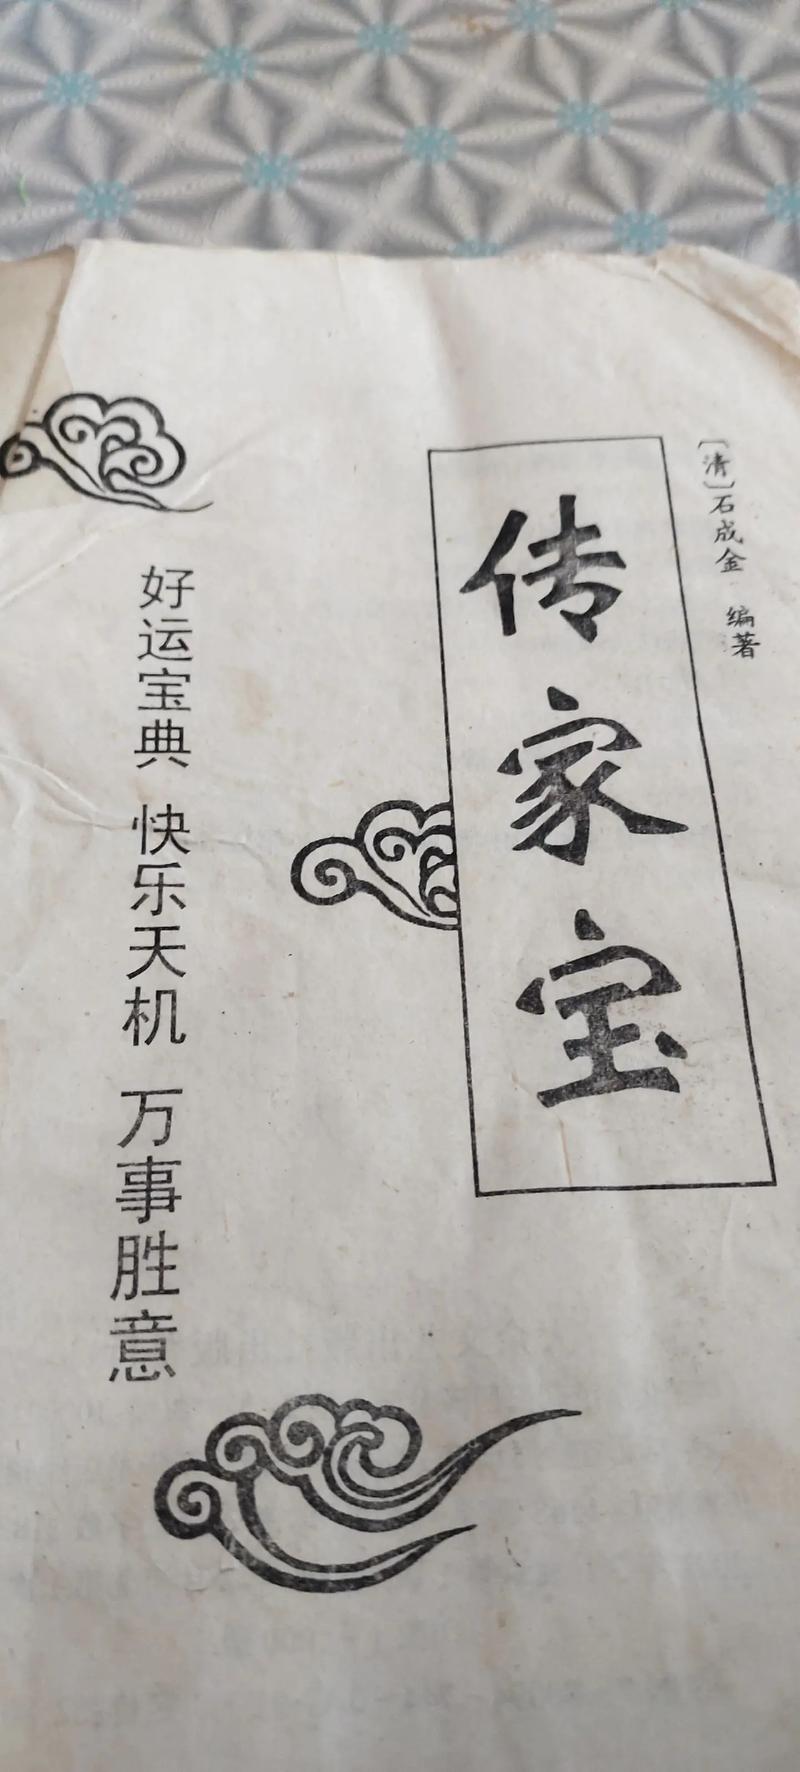 〔清〕石成金 编著
传家宝
好运宝典 快乐天机 万事胜意